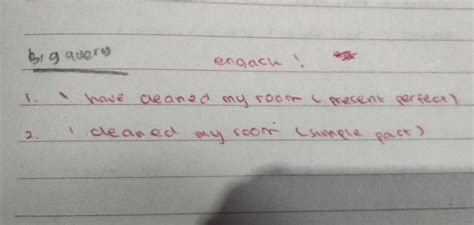 Big query
engach !
1. I have cleaned my room (present perfect)
2. I cleaned my room (simple past)